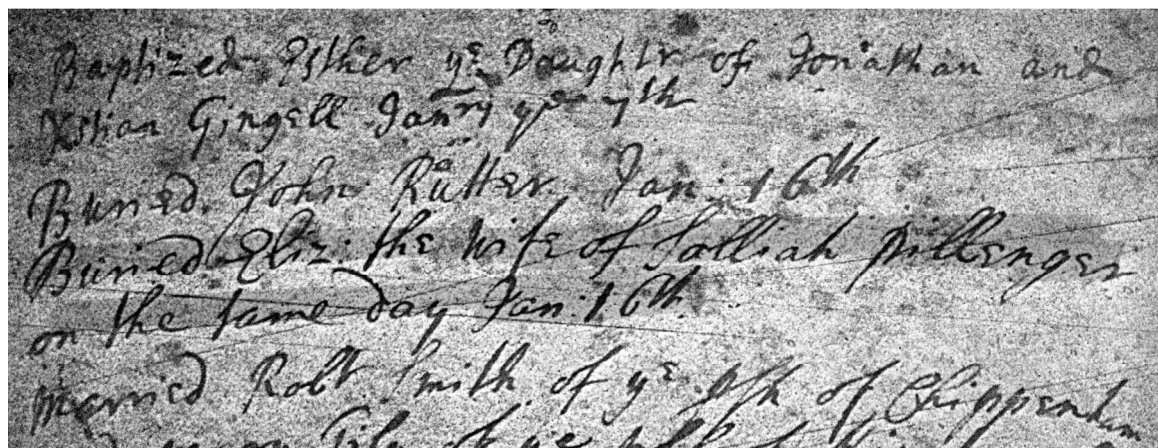 Baptized Esther ye Daughter of Jonathan and
Xstian Gingell Janry ye 7th
Buried John Rutter Jan: 16th
Buried Eliz: the wife of Salliah Pillenger
on the same day Jan: 16th
Married Robt Smith of ye psh of Chippenham
of ye